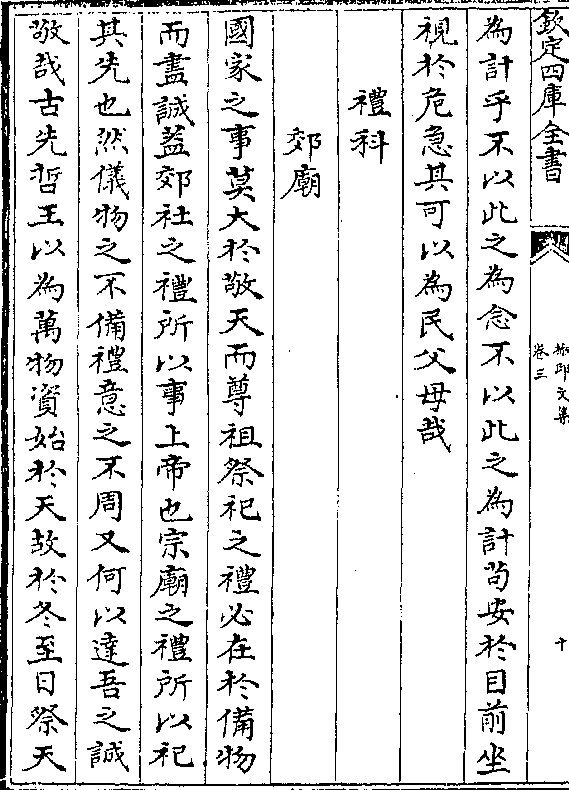 欽定四庫全書
邱文集
卷三
十
為計乎不以此之為念不以此之為計苟安於目前坐
視於危急其可以為民父母哉
禮科
郊廟
國家之事莫大於敬天而尊祖祭祀之禮必在於備物
而盡誠蓋郊社之禮所以事上帝也宗廟之禮所以祀
其先也然儀物之不備禮意之不周又何以達吾之誠
敬哉古先哲王以為萬物資始於天故於冬至日祭天